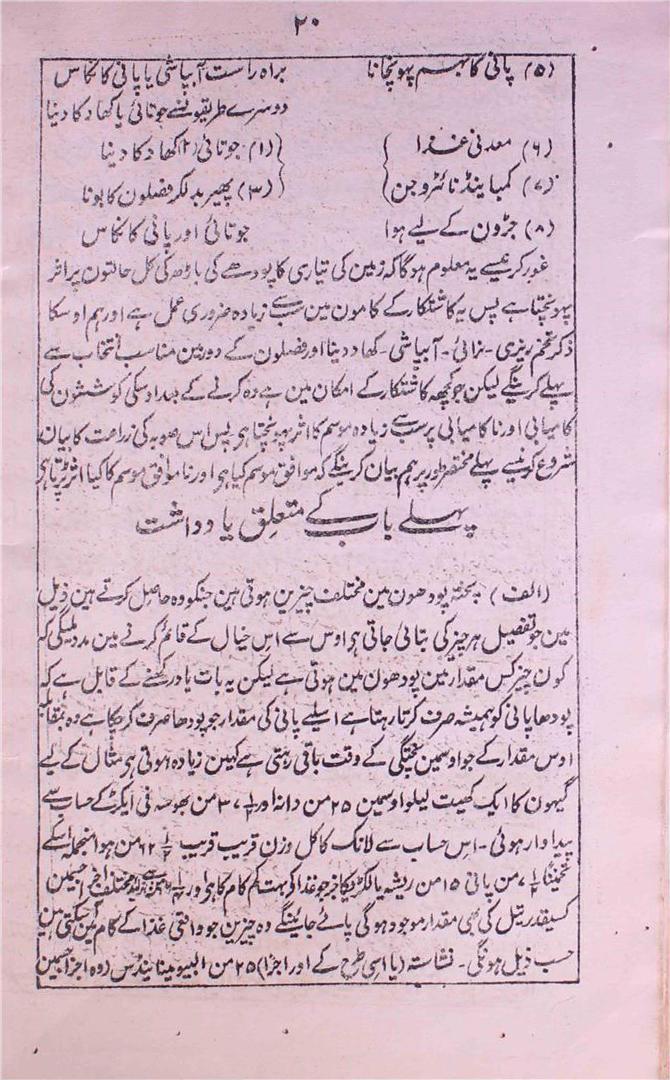 ۲۰
(۵) پانی کا بہم پہونچانا براہ راست آبپاشی یا پانی کا نکاس
دوسرے طریقونسے جوتائی یا کھاد کا دینا
(۶) معدنی غذا (۱) جوتائی (۲) کھاد کا دینا
(۷) کمبائینڈ نائٹروجن (۳) پھیر بدلکر فصلون کا بونا
(۸) جڑون کے لیے ہوا جوتائی اور پانی کا نکاس
غور کرنیسے یہ معلوم ہوگا کہ زمین کی تیاری کا پودھے کی باڑھ کی کل حالتون پر اثر
پہونچتا ہے پس یہ کاشتکار کے کامون مین سب سے زیادہ ضروری عمل ہے اور ہم اوسکا
ذکر تخم ریزی ۔ نرائی ۔ آبپاشی ۔ کھاد دینا اور فصلون کے دور مین مناسب انتخاب سے
پہلے کرینگے لیکن جو کچھ کاشتکار کے امکان مین ہے وہ کرنے کے بعد اوسکی کوششون کی
کامیابی اور ناکامیابی پر سب سے زیادہ موسم کا اثر پہونچتا ہی پس اس صوبہ کی زراعت کا بیان
شروع کرنیسے پہلے مختصر طور پر ہم بیان کرینگے کہ موافق موسم کیا ہی اور ناموافق موسم کا کیا اثر پڑتا ہی
پہلے باب کے متعلق یادداشت
(الف) پختہ پودھون مین مختلف چیزین ہوتی ہین جنکو وہ حاصل کرتے ہین ذیل
مین جو تفصیل ہر چیز کی بتائی جاتی ہی اوس سے اس خیال کے قائم کرنے مین مدد ملیگی کہ
کون چیز کس مقدار مین پودھون مین ہوتی ہے لیکن یہ بات یاد رکھنے کے قابل ہے کہ
پودھا پانی کو ہمیشہ صرف کرتا رہتا ہے اسلیے پانی کی مقدار جو پودھا صرف کرچکا ہے وہ بمقابلہ
اوس مقدار کے جو اوسمین پختگی کے وقت باقی رہتی ہے کہین زیادہ ہوتی ہی مثال کے لیے
گیہون کا ایک کھیت لیلو اوسمین ۲۵ من دانہ اور ۳۷ ۱/۲ من بھوسہ فی ایکڑ کے حساب سے
پیداوار ہوئی ۔ اس حساب سے لانک کا کل وزن قریب قریب ۶۲ ۱/۲ من ہوا منجملہ اسکے
تخمیناً ۷ ۱/۲ من پانی ۱۵ من ریشہ یا لکڑی کا جز جو غذا کو بہت کم کام کا ہی اور
کسیقدر تیل کی بھی مقدار موجود ہوگی پائے جائینگے وہ چیزین جو واقعی غذا کے کام مین آسکتی ہین
حسب ذیل ہونگی ۔ نشاستہ (یا اسی طرح کے اور اجزا) ۲۵ من البیومینائیڈس (وہ اجزا جسمین